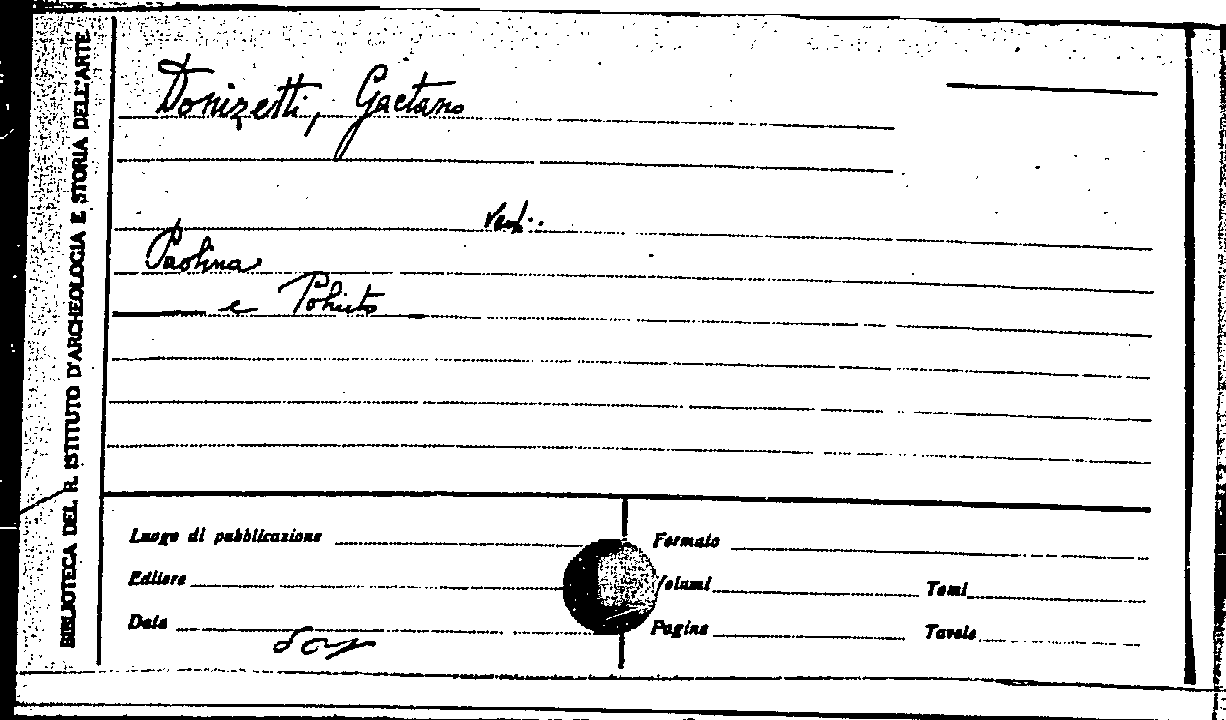 BIBLIOTECA DEL R. ISTITUTO D'ARCHEOLOGIA E STORIA DELL'ARTE
Donizetti, Gaetano
Paolina
e Poliuto
Luogo di pubblicazione
Formato
Editore
Volumi
Tomi
Data
Pagine
Tavole